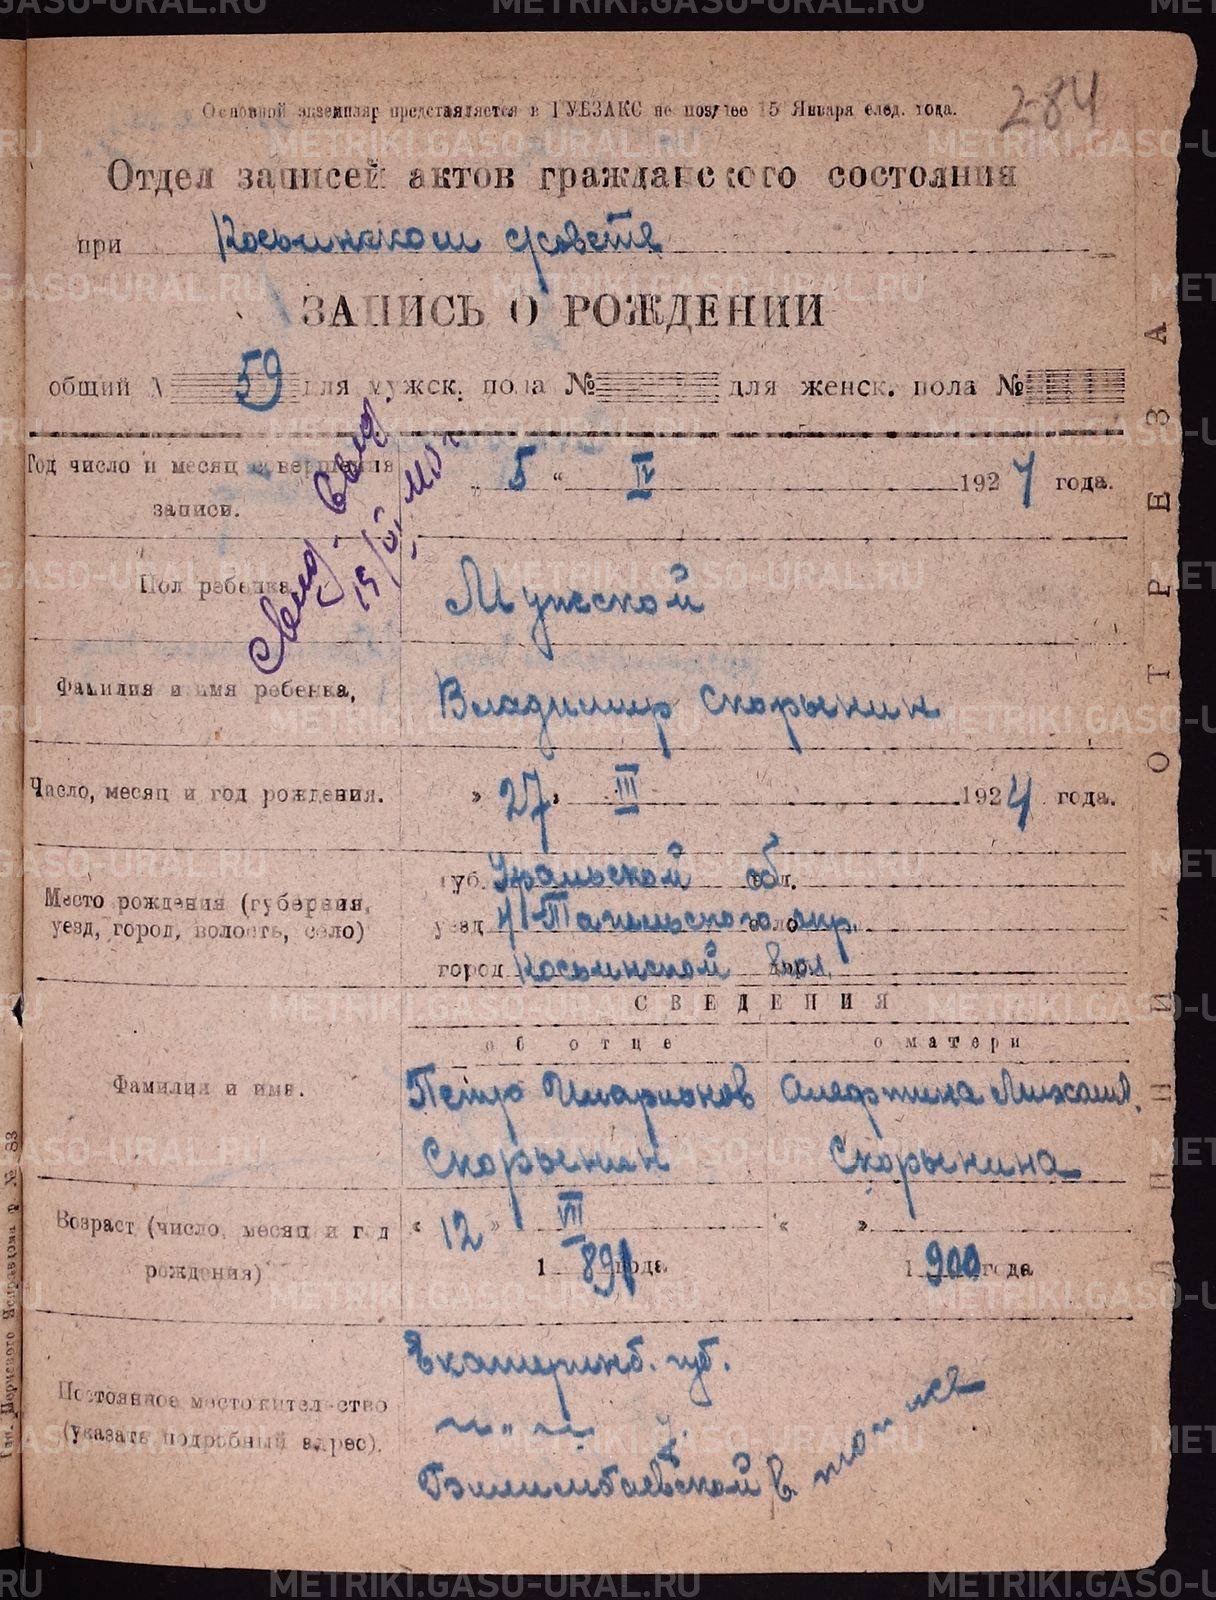 284
Основной экземпляр представляется в ГУБЗАКС не позднее 15 Января след. года.
Отдел записей актов гражданского состояния
при Косьинском с/совете
ЗАПИСЬ О РОЖДЕНИИ
общий № 59 для мужск. пола № для женск. пола №
Год число и месяц совершения записи. „ 5 “ IV 1924 года.
Пол ребенка Мужской
Фамилия и имя ребенка, Владимир Скорынин
Число, месяц и год рождения. » 27 » III 1924 года.
Место рождения (губерния, губ. Уральской обл.
уезд, город, волость, село) уезд Н-Тагильского окр.
город Косьинской вол.
СВЕДЕНИЯ
об отце о матери
Фамилия и имя. Петр Иларионов Алефтина Михаил.
Скорынин Скорынина
Возраст (число, месяц и год « 12 » VII « »
рождения) 1 891 года 1 900 года
Екатеринб. губ.
Постоянное местожительство
(указать подробный адрес).
Билимбаевской в. то же
15/VI
ЛИНИЯ ОТРЕЗА
№ 83
METRIKI.GASO-URAL.RU